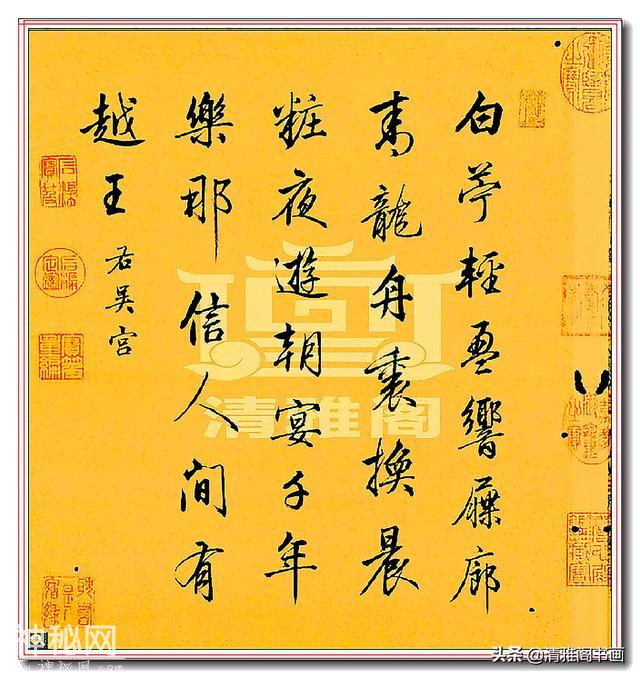 白苧輕盈響屧廊
青龍舟裏換晨
粧夜遊朝宴千年
樂那信人間有
越王
右吳宮
清雅阁
神秘网
头条 @清雅阁书画